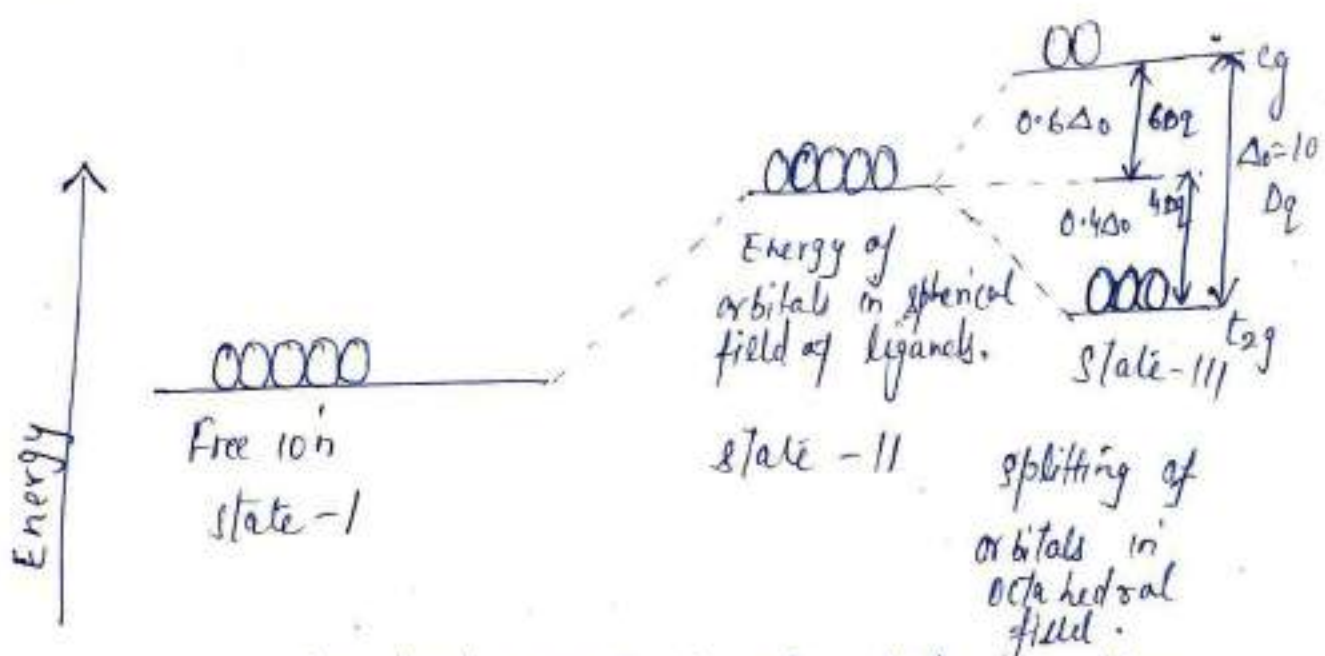 Energy
Free ion
state-I
Energy of
orbitals in spherical
field of ligands.
state - II
eg
0.6Δ0
6Dq
Δ0=10
Dq
0.4Δ0
4Dq
t2g
State-III
splitting of
orbitals in
octahedral
field.